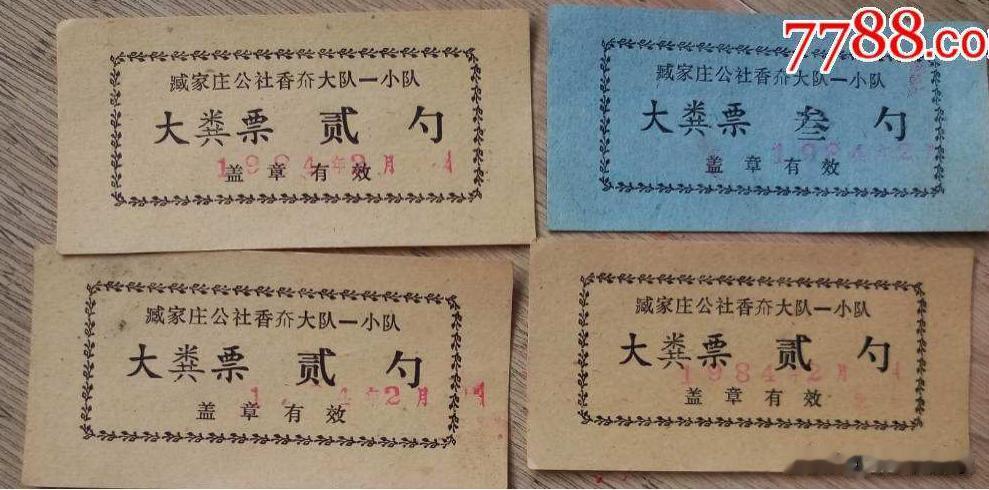 臧家庄公社香夼大队一小队
大粪票 贰 勺
1984年2月 1
盖章有效
7788.co
臧家庄公社香夼大队一小队
大粪票 叁 勺
1984年2
盖章有效
臧家庄公社香夼大队一小队
大粪票 贰 勺
1 4年2月 1
盖章有效
臧家庄公社香夼大队一小队
大粪票 贰 勺
1984年2月 1
盖章有效